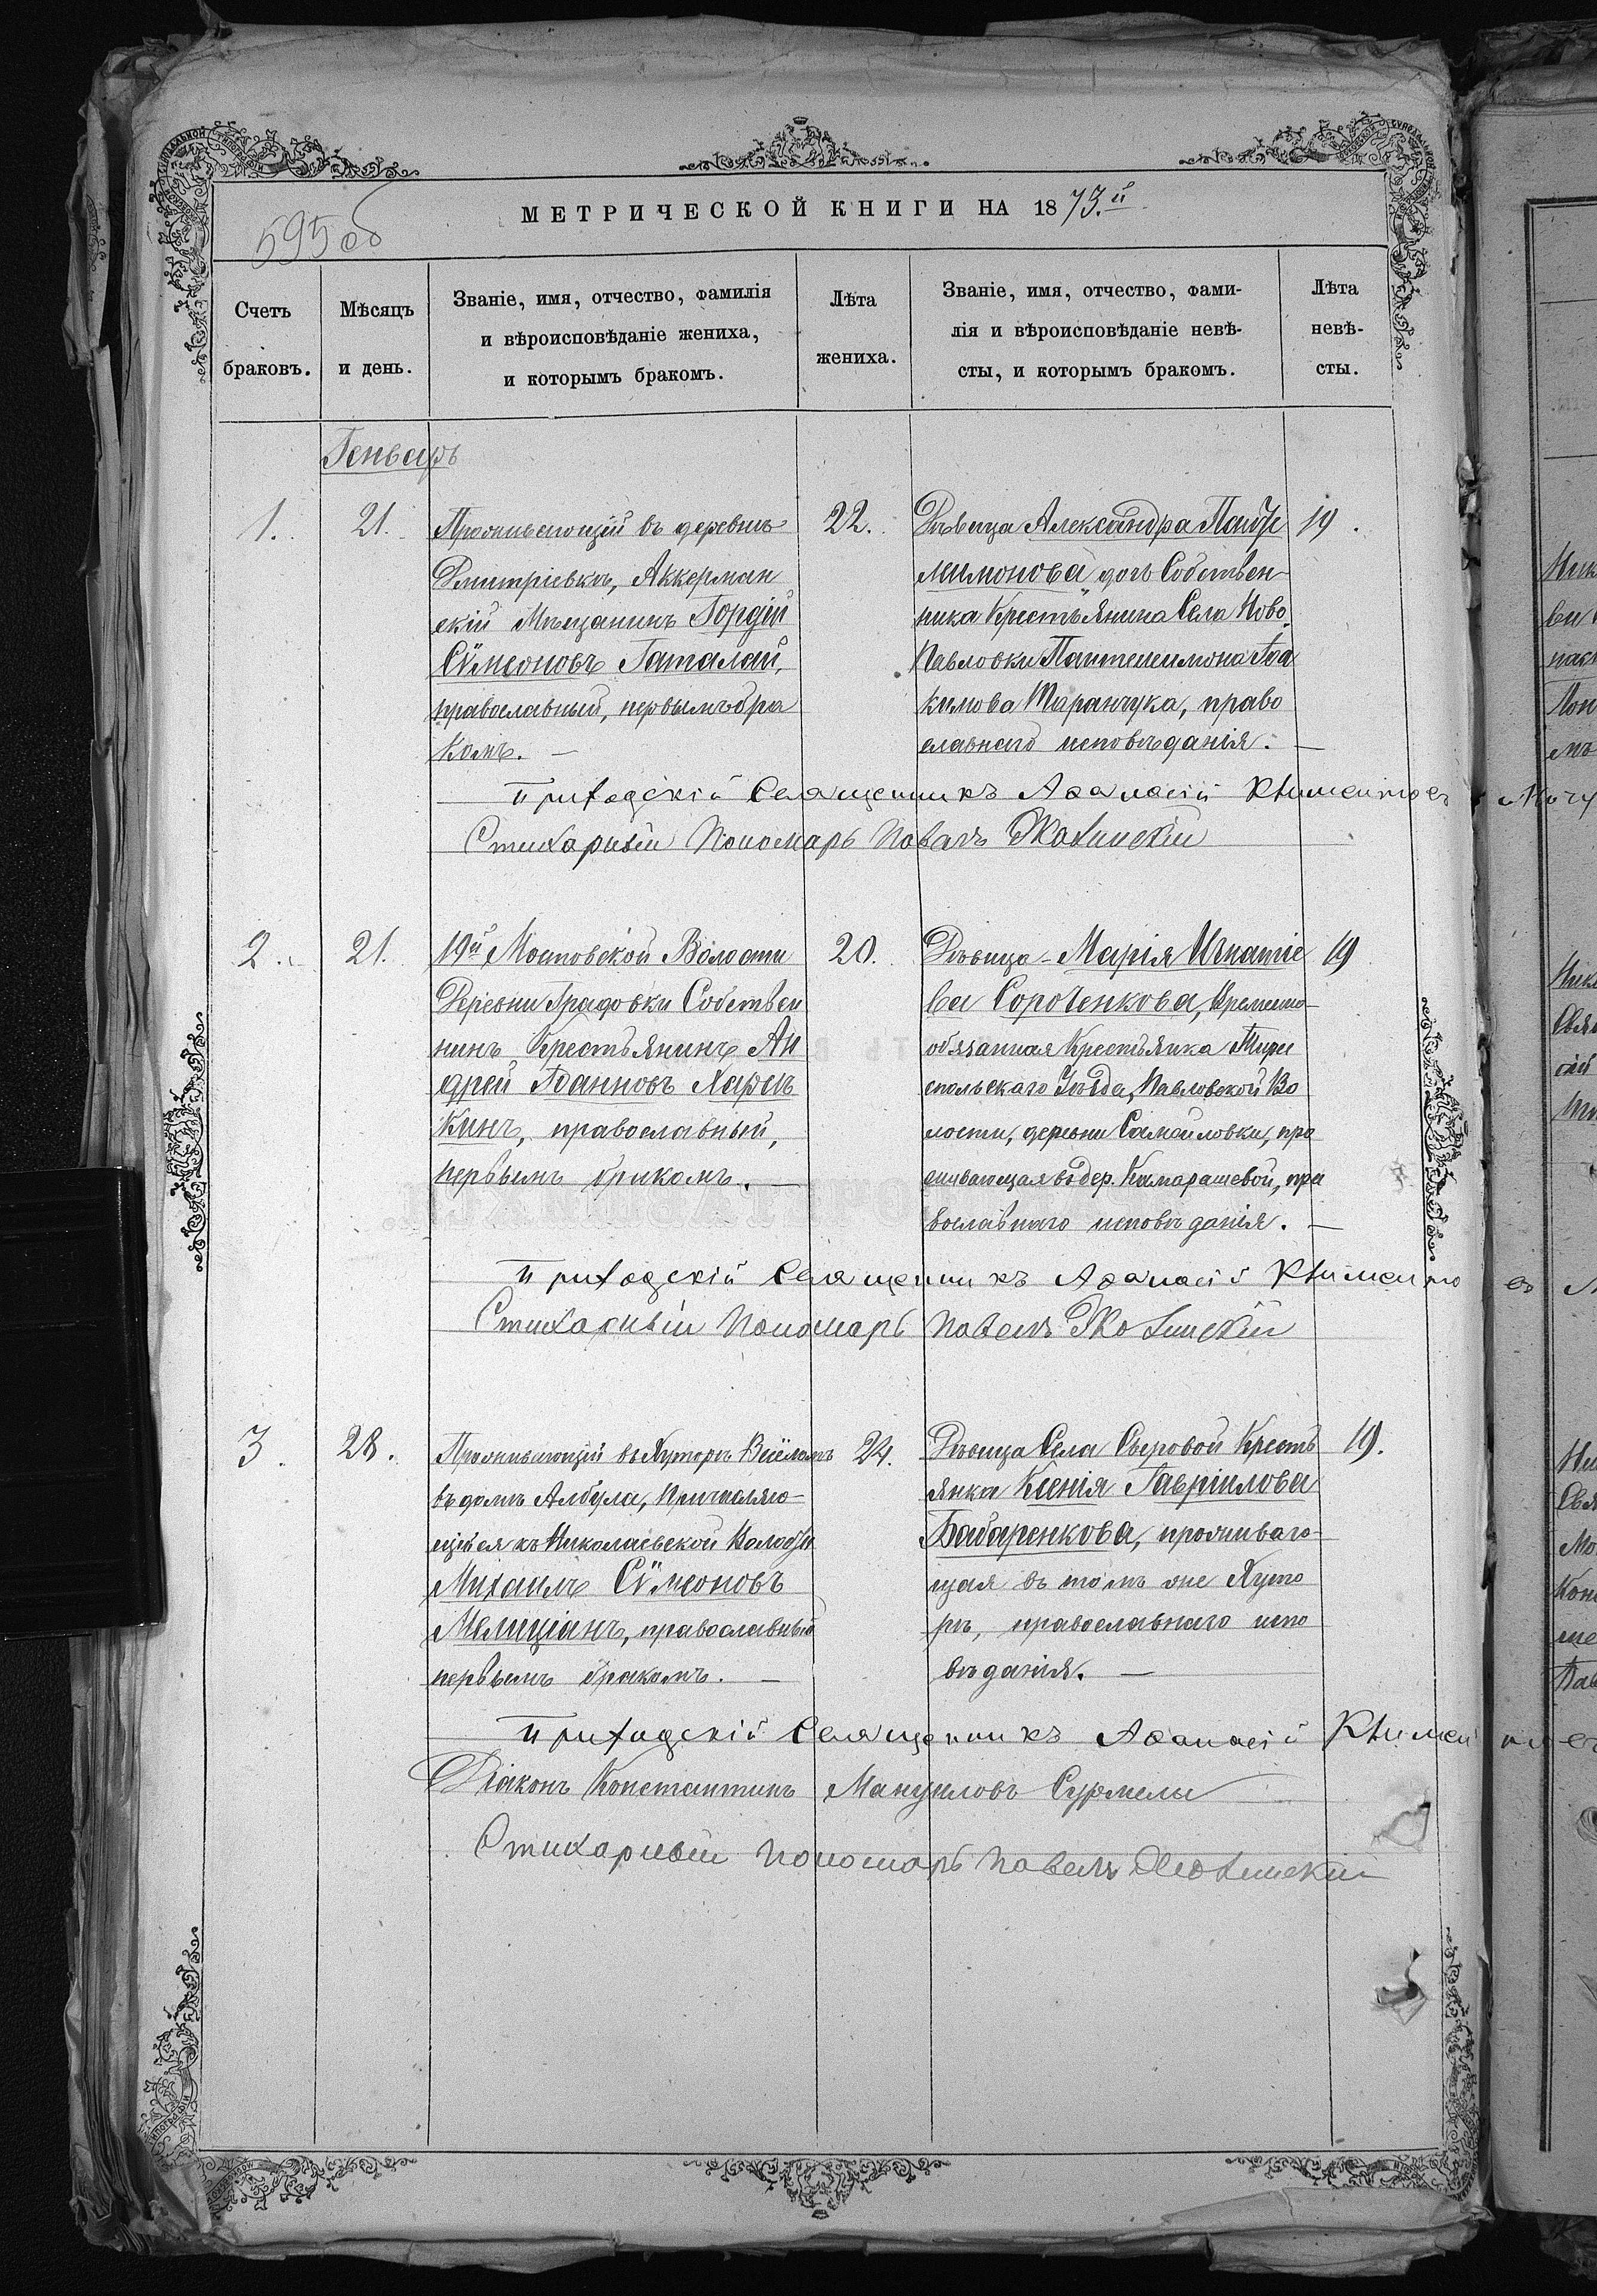 МЕТРИЧЕСКОЙ КНИГИ НА 1873.й
595об
Счетъ браковъ.
Мѣсяцъ и день.
Званіе, имя, отчество, фамилія
и вѣроисповѣданіе жениха,
и которымъ бракомъ.
Лѣта жениха.
Званіе, имя, отчество, фами-
лія и вѣроисповѣданіе невѣ-
сты, и которымъ бракомъ.
Лѣта невѣ-
сты.
Генварь
1.
21.
Проживающій въ деревнѣ
Дмитріевкѣ, Аккерман
скій Мѣщанинъ Гордій
Сѵмеоновъ Гаталай,
православный, первымъ бра
комъ. —
22.
Дѣвица Александра Панте
лимонова, дочь Собствен-
ника Крестьянина Села Ново
Павловки Пантелеимона Іоа
кимова Таранчука, право
славнаго исповѣданія. —
19.
Приходскій Священникъ Аѳанасій Климентов
Стихарный Пономарь Павелъ
2.
21.
19й Мостовской Волости
Деревни Градовки Собствен
никъ Крестьянинъ Ан
дрей Іоанновъ Хареч
кинъ, православный,
первымъ бракомъ. —
20.
Дѣвица - Марія Игнатіе
ва Сороченкова, Временно-
обязанная Крестьянка Тири
спольскаго Уѣзда, Павловской Во
лости, деревни Самойловки, про
живающая въ дер. Камарашевой, пра
вославнаго исповѣданія. —
19
Приходскій Священникъ Аѳанасій Климентов
Стихарный Пономарь Павелъ
3.
28.
Проживающій въ Хуторѣ
въ домѣ Албула, Причисляю-
щійся къ Николаевской Волости
Михаилъ Сѵмеоновъ
Мелиціанъ, православный
первымъ бракомъ. —
24.
Дѣвица Села Сыровой Кресть
янка Ксенія Гавріилова
Бабаренкова, проживаю-
щая въ томъ же Хуто
рѣ, православнаго испо
вѣданія. —
19.
Приходскій Священникъ Аѳанасій Климентов
Діаконъ Константинъ Мануиловъ Сурмелы
Стихарный Пономарь Павелъ